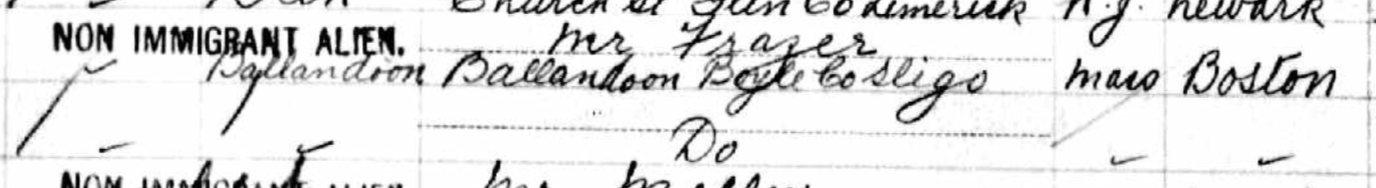 Church St Glin Co Limerick N.J. Newark
NON IMMIGRANT ALIEN. Mr Frazer
Ballandoon Ballandoon Boyle Co Sligo Mass Boston
Do
NON IMMIGRANT ALIEN Mr